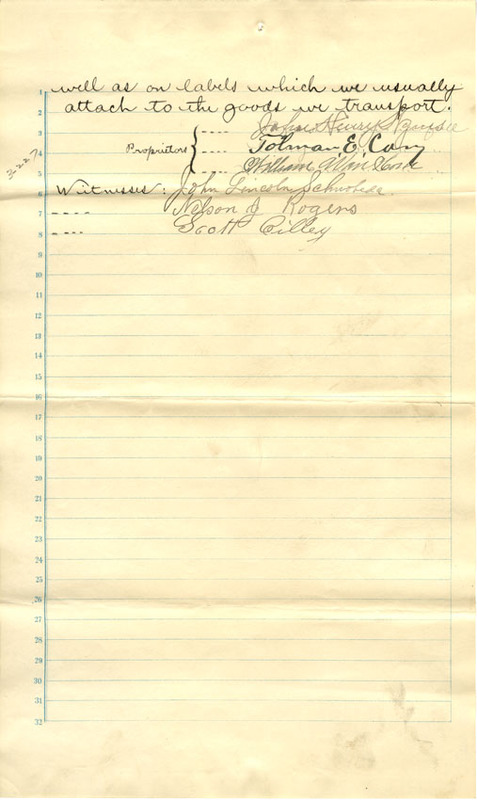 1 well as on labels which we usually
2 attach to the goods we transport.
3 John Henry
4 Proprietors Tolman E. Cary
3227
5 William
6 Witnesses: John Lincoln
7 Nelson J Rogers
8 Scott Cilley
9
10
11
12
13
14
15
16
17
18
19
20
21
22
23
24
25
26
27
28
29
30
31
32